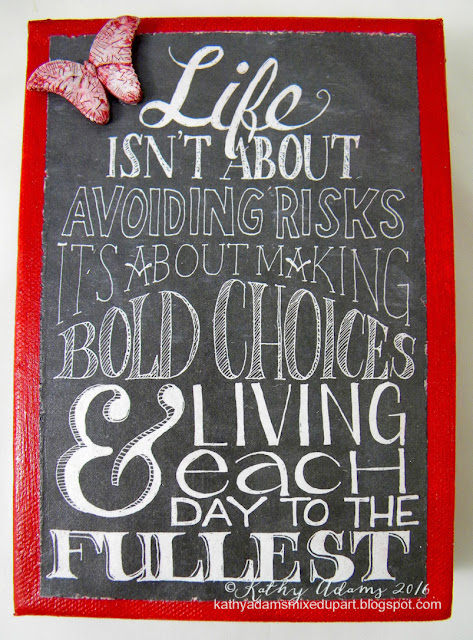 Life
ISN'T ABOUT
AVOIDING RISKS
IT'S ABOUT MAKING
BOLD CHOICES
& LIVING
each
DAY TO THE
FULLEST
© Kathy Adams 2016
kathyadamsmixedupart.blogspot.com